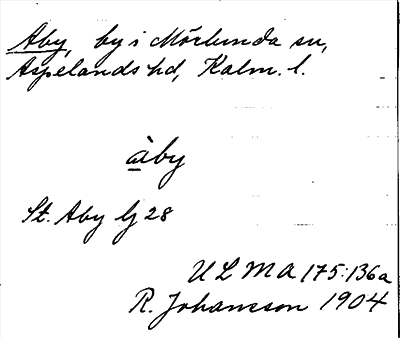 Aby, by i Mörlunda sn,
Aspelands hd, Kalm. l.
àby
St. Aby lj 28
ULMA 175:136a
R. Johansson 1904